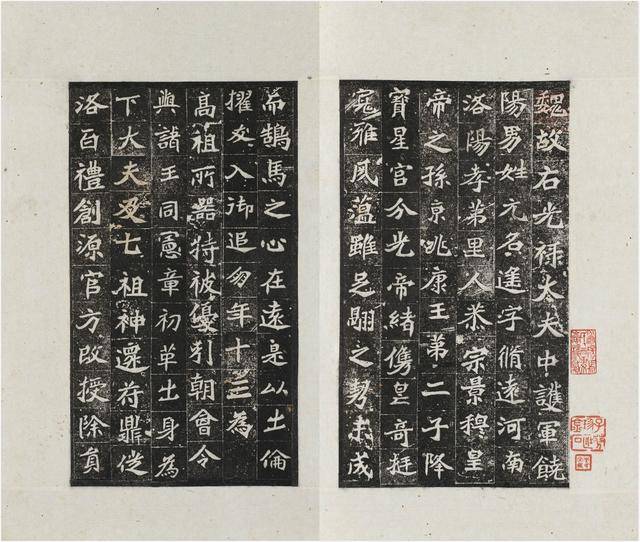 魏故右光祿大夫中護軍饒
陽男姓元名遙字脩遠河南
洛陽孝弟里人恭宗景穆皇
帝之孫京兆康王第二子降
寶星宮分光帝緒儁皇奇挺
寬雅夙蘊雖足翮之勢未成
而鵠馬之心在遠是以士倫
擢入御年十三為
高祖所器特被優引朝會令
與諸王同憲章初革出身為
下大夫及七祖神遷苻鼎從
洛百禮創源官方改授除員